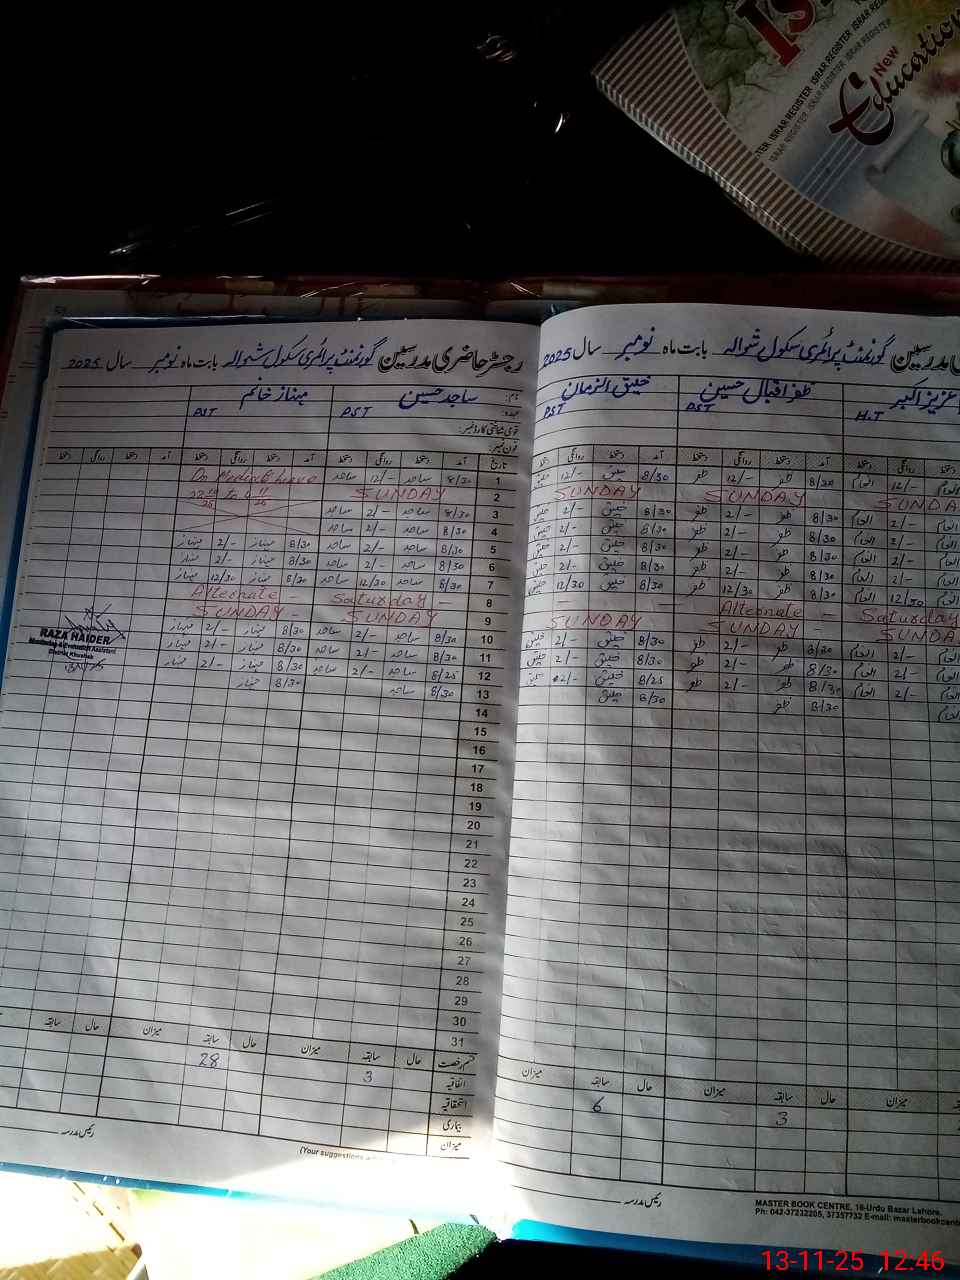 ISRAR REGISTER ISRAR REGISTER ISRAR REGISTER
New
Education
رجسٹر حاضری مدرسین گورنمنٹ پرائمری سکول شوالہ بابت ماہ نومبر سال 2025
نام: ساجد حسین مہناز خانم
عہدہ: PST PST
قومی شناختی کارڈ نمبر:
فون نمبر:
تاریخ آمد دستخط روانگی دستخط آمد دستخط روانگی دستخط آمد دستخط روانگی دستخط
1 8/30 ساجد 12/- ساجد On Medical Leave
2 SUNDAY
3 8/30 ساجد 2/- ساجد
4 8/30 ساجد 2/- ساجد
5 8/30 ساجد 2/- ساجد 8/30 مہناز 2/- مہناز
6 8/30 ساجد 2/- ساجد 8/30 مہناز 2/- مہناز
7 8/30 ساجد 12/30 ساجد 8/30 مہناز 12/30 مہناز
8 Alternate - Saturday -
9 SUNDAY - SUNDAY
10 8/30 ساجد 2/- ساجد 8/30 مہناز 2/- مہناز
11 8/30 ساجد 2/- ساجد 8/30 مہناز 2/- مہناز
12 8/25 ساجد 2/- ساجد 8/30 مہناز 2/- مہناز
13 8/30 ساجد 8/30 مہناز
14
15
16
17
18
19
20
21
22
23
24
25
26
27
28
29
30
31
RAZA HAIDER
Monitoring & Evaluation Assistant
District Khushab
قسم رخصت حال سابقہ میزان حال سابقہ میزان حال سابقہ
اتفاقیہ 3 28
استحقاقیہ
بیماری
میزان
رئیس مدرسہ
(Your suggestions
مدرسین گورنمنٹ پرائمری سکول شوالہ بابت ماہ نومبر سال 2025
عزیز اکبر ظفر اقبال حسین خلیق الزمان
H.T PST PST
دستخط روانگی دستخط آمد دستخط روانگی دستخط آمد دستخط روانگی دستخط
12/- 8/30 ظفر 12/- ظفر 8/30 خلیق 12/- خلیق
SUNDAY SUNDAY SUNDAY
2/- 8/30 ظفر 2/- ظفر 8/30 خلیق 2/- خلیق
2/- 8/30 ظفر 2/- ظفر 8/30 خلیق 2/- خلیق
2/- 8/30 ظفر 2/- ظفر 8/30 خلیق 2/- خلیق
2/- 8/30 ظفر 2/- ظفر 8/30 خلیق 2/- خلیق
12/30 8/30 ظفر 12/30 ظفر 8/30 خلیق 12/30 خلیق
Alternate - Saturday
SUNDAY SUNDAY SUNDA
2/- 8/30 ظفر 2/- ظفر 8/30 خلیق 2/- خلیق
2/- 8/30 ظفر 2/- ظفر 8/30 خلیق 2/- خلیق
2/- 8/30 ظفر 2/- ظفر 8/25 خلیق 2/- خلیق
8/30 ظفر 8/30 خلیق
میزان حال سابقہ میزان حال سابقہ میزان
3 6
رئیس مدرسہ
MASTER BOOK CENTRE, 16-Urdu Bazar Lahore.
Ph: 042-37232205, 37357732 E-mail: masterbookcent
13-11-25 12:46